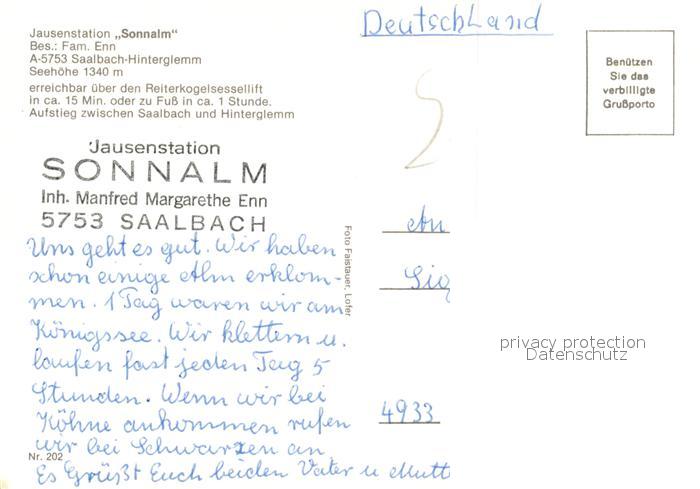 Deutschland
Jausenstation „Sonnalm“
Bes.: Fam. Enn
A-5753 Saalbach-Hinterglemm
Seehöhe 1340 m
erreichbar über den Reiterkogelsessellift
in ca. 15 Min. oder zu Fuß in ca. 1 Stunde.
Aufstieg zwischen Saalbach und Hinterglemm
Benützen
Sie das
verbilligte
Grußporto
Jausenstation
SONNALM
Inh. Manfred Margarethe Enn
5753 SAALBACH
Uns geht es gut. Wir haben
schon einige Alm erklom-
men. 1 Tag waren wir am
Königssee. Wir klettern u.
laufen fast jeden Tag 5
Stunden. Wenn wir bei
Köhne ankommen rufen
wir bei Schwarzen an
Es Grüßt Euch beiden Vater u Mutt
Nr. 202
Foto Faistauer, Lofer
An
Sig
4933
privacy protection
Datenschutz